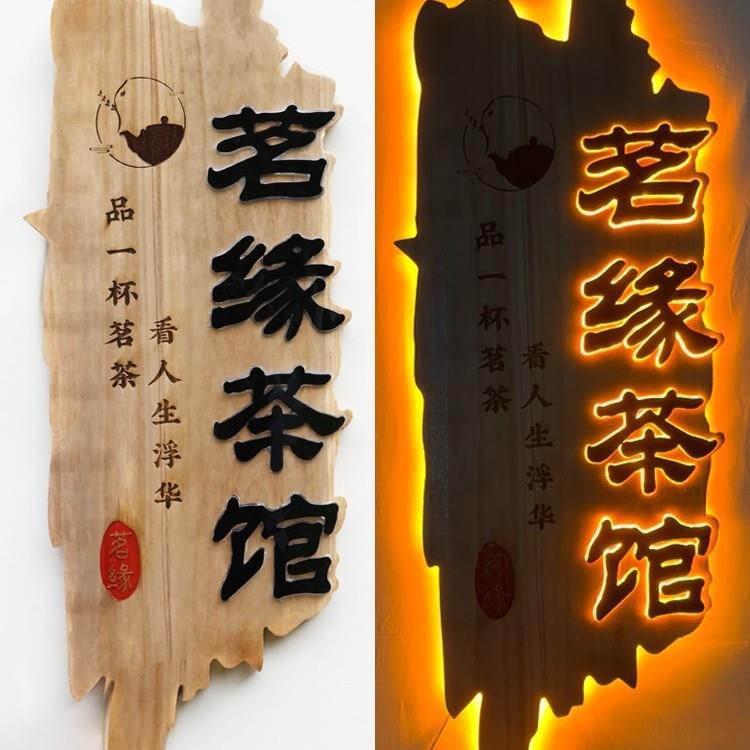 茗缘茶馆
品一杯茗茶
看人生浮华
茗缘
茗缘茶馆
品一杯茗茶
看人生浮华
茗缘